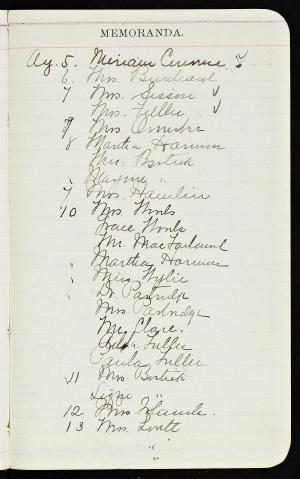 MEMORANDA.
Ag. 5. Miriam
6. Mrs.
7 Mrs. Sisson ✓
Mrs. Fuller ✓
9 Mrs.
8 Martha Harmon
Mrs. Bostick
Maxime "
7 Mrs. Hamlin
10 Mrs. Wools
Grace Wools
Mr. MacFarland
Martha Harmon
Miss Wylie
Dr. Partridge
Mrs. Partridge
Mr. Clare.
Fuller
Paula Fuller.
11 Mrs. Bostick
Lizzie "
12 Mrs
13 Mrs.
"
"